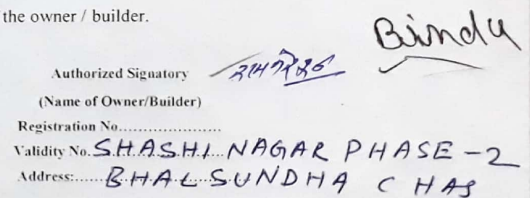 the owner / builder.
Bindu
Authorized Signatory
(Name of Owner/Builder)
Registration No.....................
Validity No. SHASHI NAGAR PHASE-2
Address:...... BHALSUNDHA CHAS